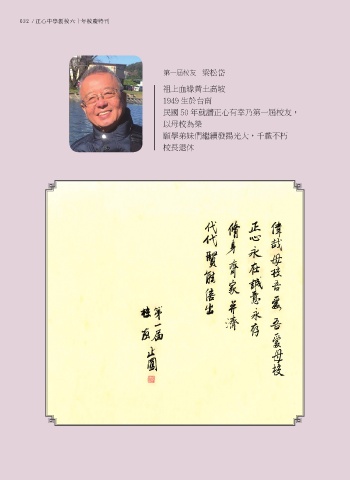 032 / 正心中學創校六十年校慶特刊
第一屆校友 梁松岱
祖上血緣黃土高坡
1949 生於台南
民國 50 年就讀正心有幸乃第一屆校友，
以母校為榮
願學弟妹們繼續發揚光大，千載不朽
校長退休
偉哉母校吾愛吾愛母校
正心永在誠意永存
脩身齊家并濟
代代賢能倍出
第一屆
校友